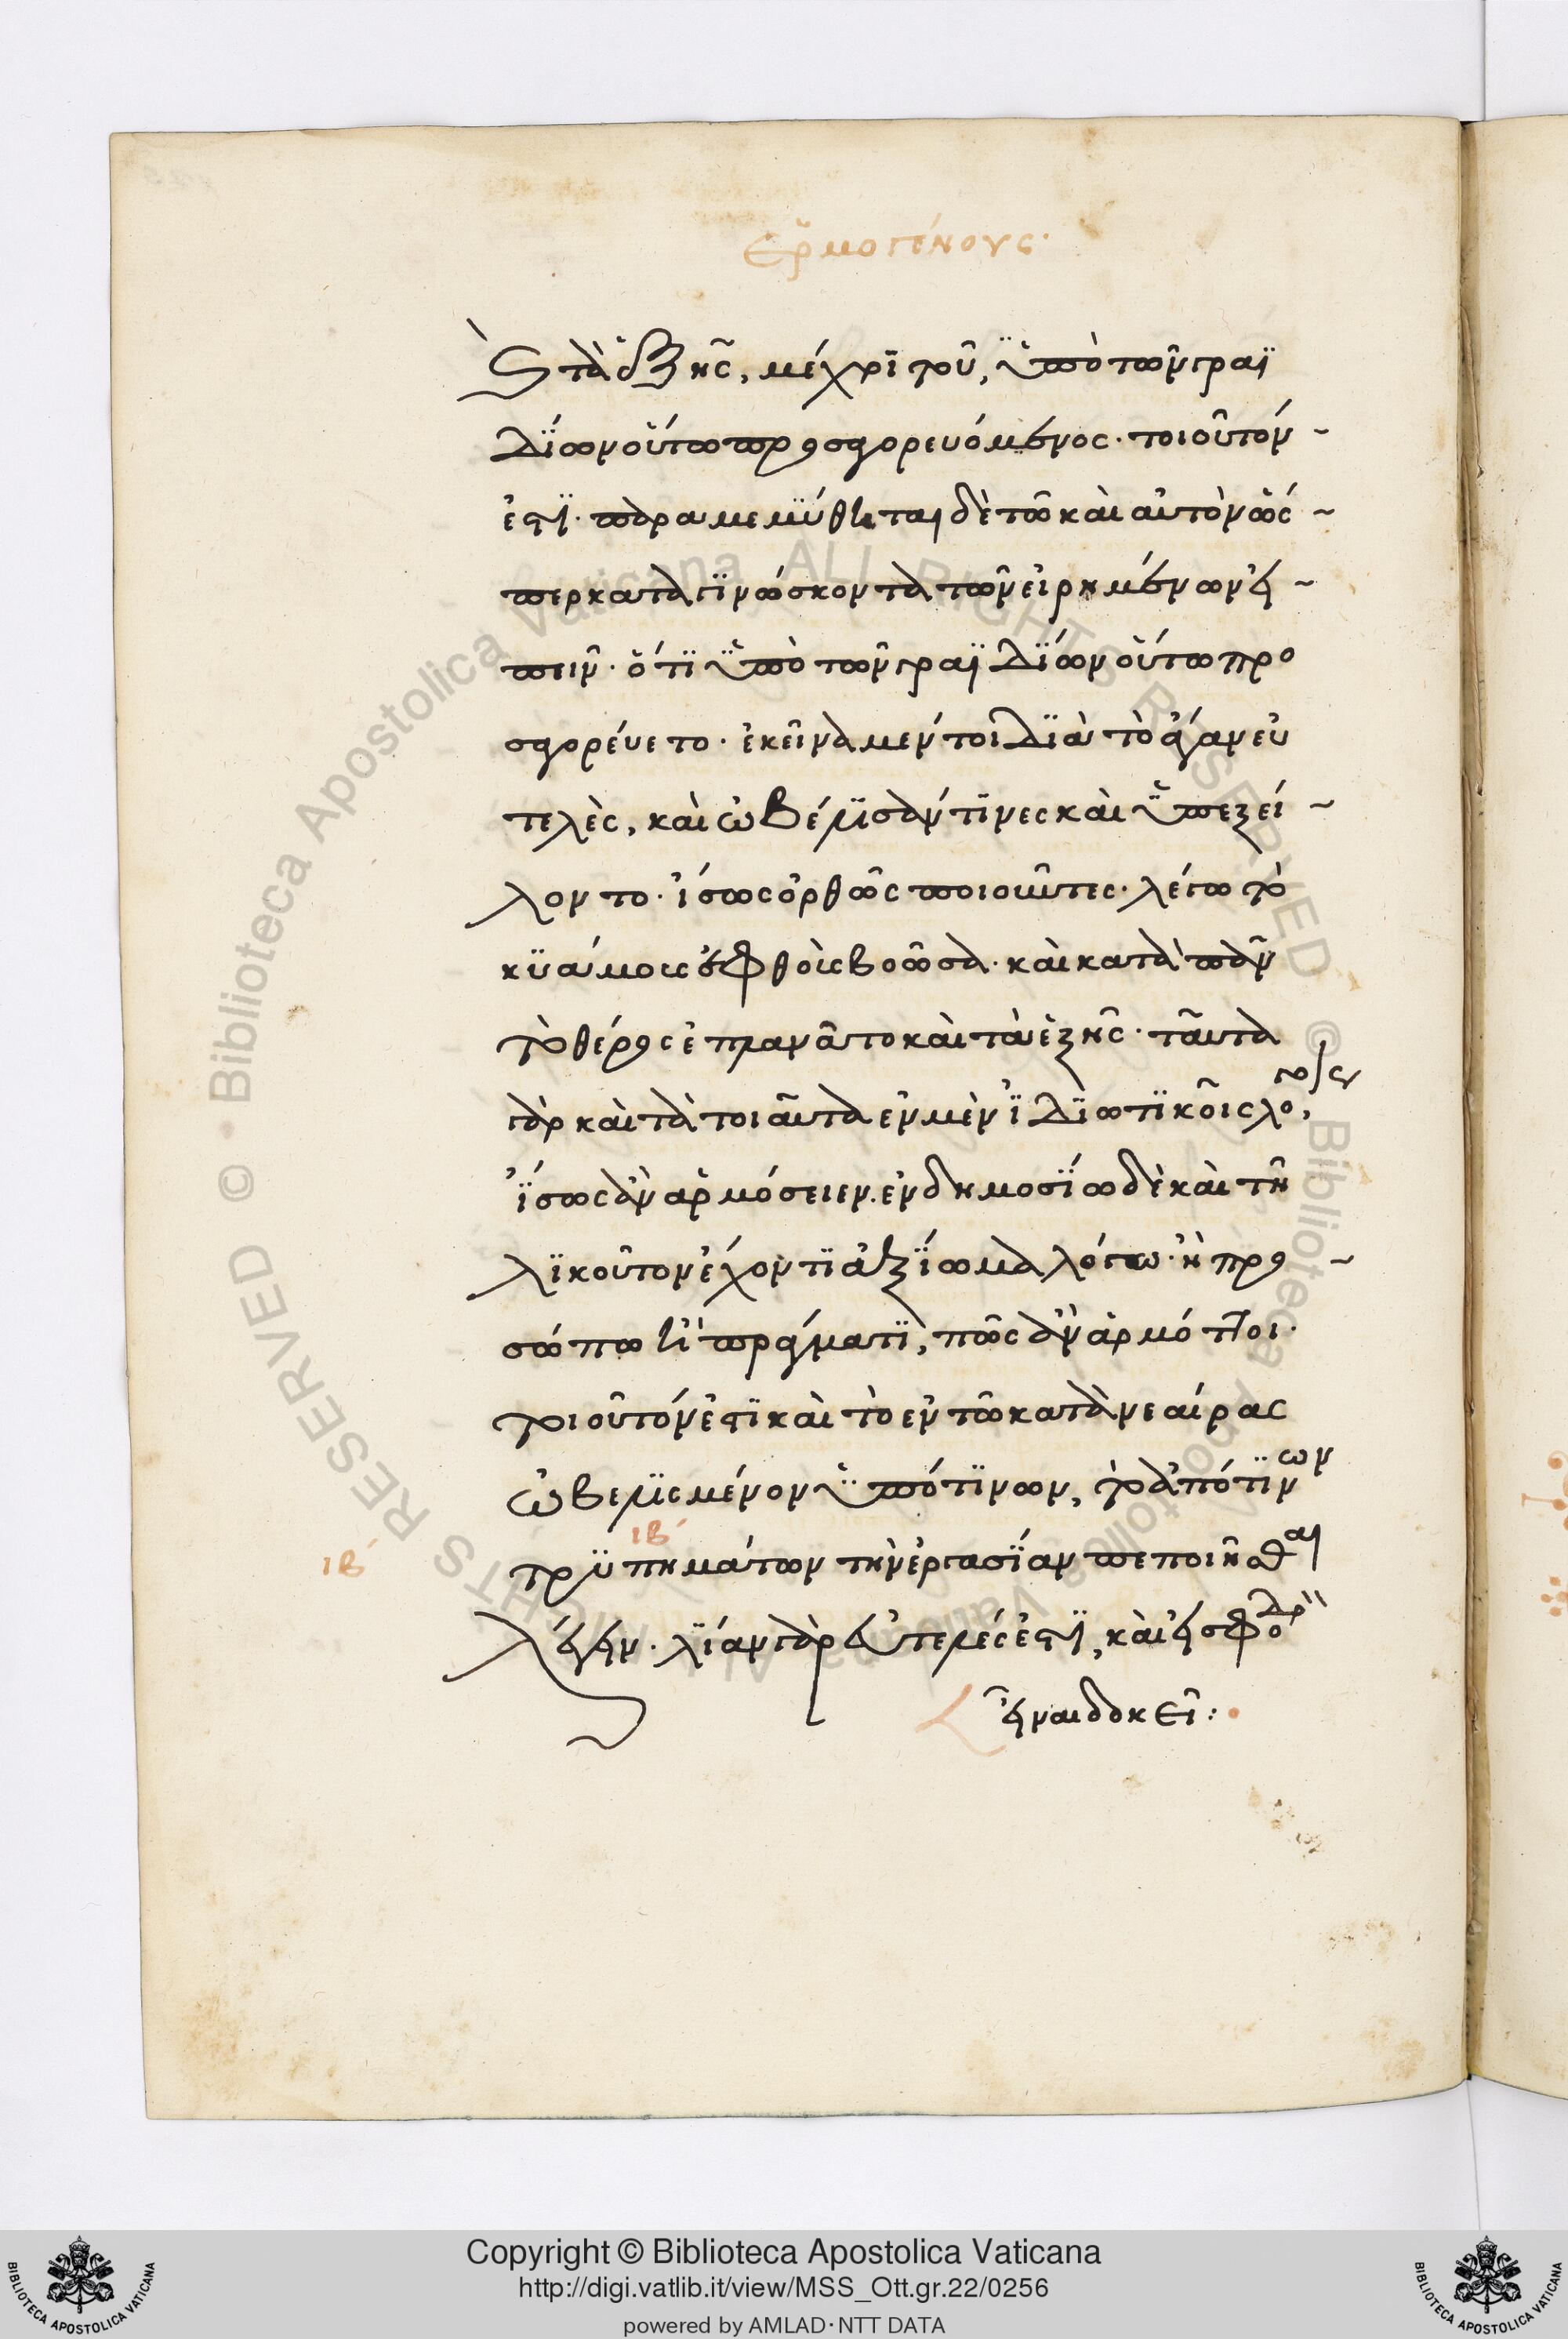 ἑρμογένους·
ϛ τὰ ἑξῆς, μέχρι τοῦ, ὑπὸ τῶν γραϊ
δίων οὕτω προσαγορευόμενος· τοιοῦτόν
ἐστι· παραμεμύθηται δὲ τῶ καὶ αὐτὸν ὥσ
περ καταγινώσκοντα τῶν εἰρημένων εἰ
πεῖν· ὅτι ὑπὸ τῶν γραϊδίων οὕτω προ
σαγορεύετο· ἐκεῖνα μέντοι διὰ τὸ ἄγαν εὐ
τελὲς, καὶ ὠβέλισάν τινες καὶ ὑπεξεί
λοντο· ἴσως ὀρθῶς ποιοῦντες· λέγω τὸ
κυάμοις ἑφθοῖς βοῶσα· καὶ κατὰ πᾶν
τὸ θέρος ἐπλανᾶτο καὶ τὰ ἑξῆς· ταῦτα
γὰρ καὶ τὰ τοιαῦτα ἐν μὲν ἰδιωτικοῖς λόγοις
ἴσως ἂν ἁρμόσειεν. ἐν δημοσίω δὲ καὶ τη
λικοῦτον ἔχοντι ἀξίωμα λόγω· ἢ προ
σώπω ἢ πράγματι, πῶς ἂν ἁρμόττοι·
τοιοῦτόν ἐστι καὶ τὸ ἐν τῶ κατὰ νεαίρας
ὠβελισμένον ὑπό τινων, τὸ ἀπό τινων
ιβ´
ιβ´ τρυπημάτων τὴν ἐργασίαν πεποιῆσθαι
λέγειν· λίαν γὰρ εὐτελές ἐστι, κἂν εἰ σφοδρὸν
εἶναι δοκεῖ:·
Copyright © Biblioteca Apostolica Vaticana
http://digi.vatlib.it/view/MSS_Ott.gr.22/0256
powered by AMLAD·NTT DATA